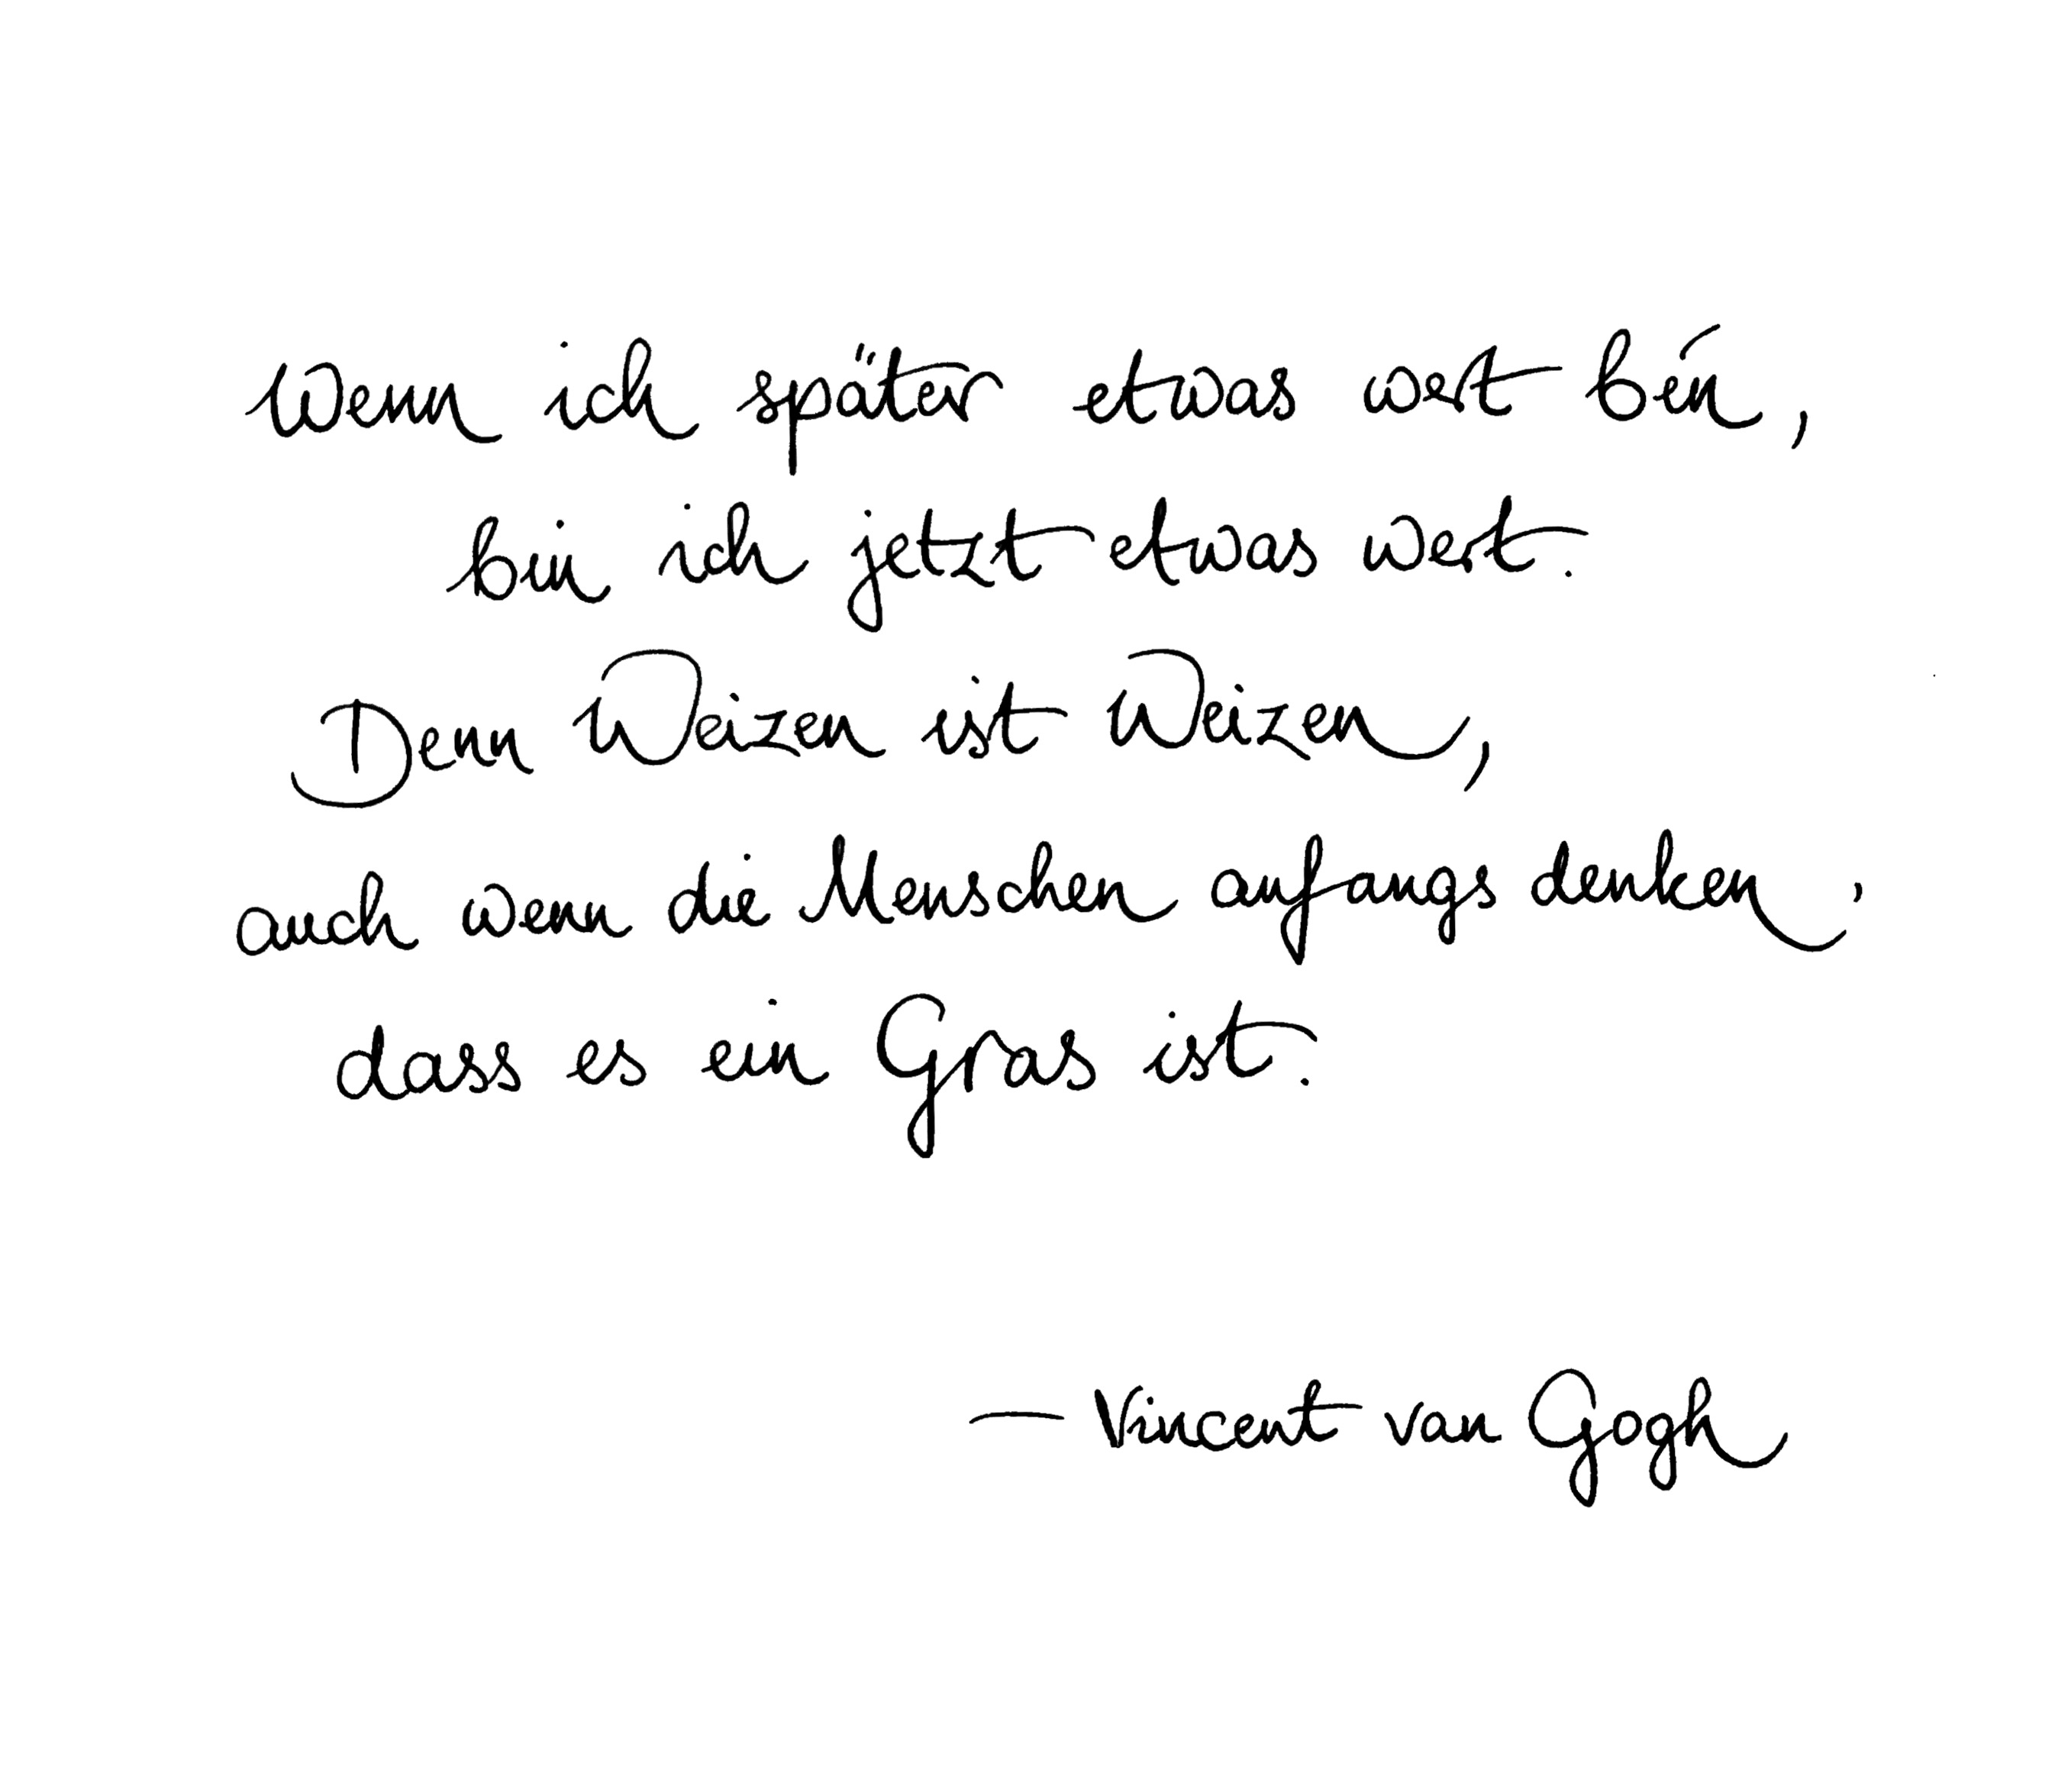 Wenn ich später etwas wert bin,
bin ich jetzt etwas wert.
Denn Weizen ist Weizen,
auch wenn die Menschen anfangs denken,
dass es ein Gras ist.
— Vincent van Gogh